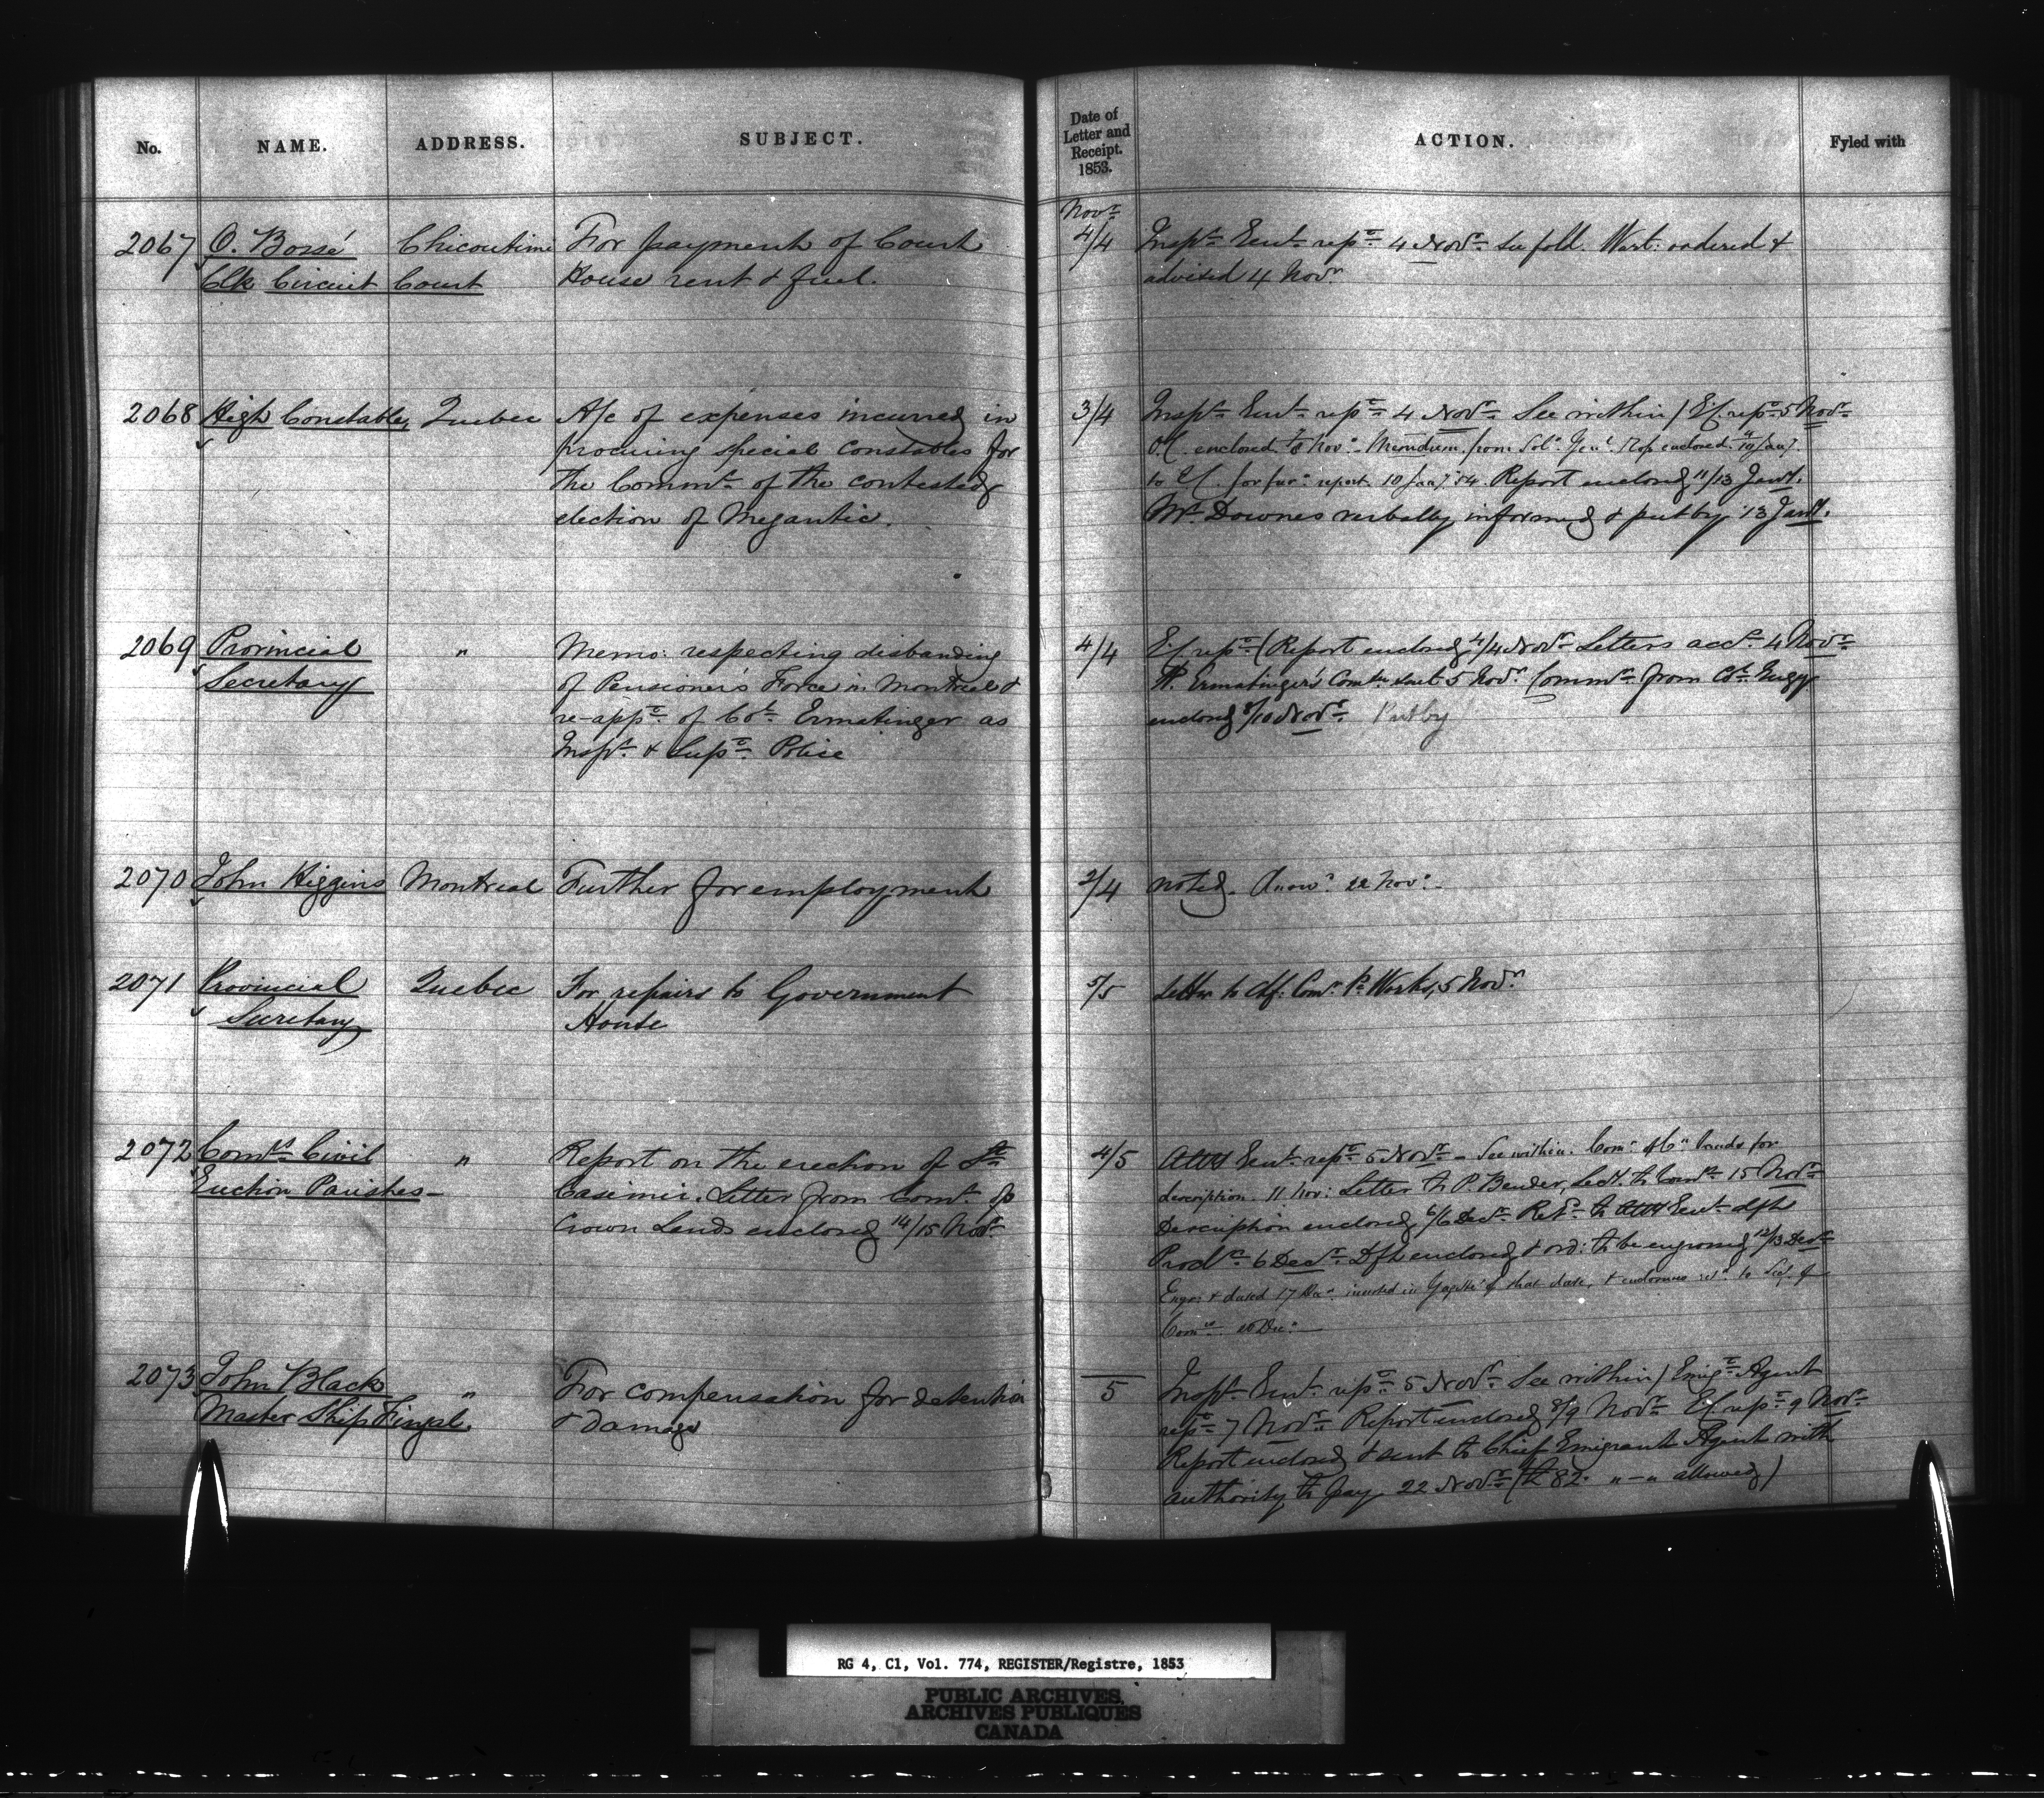 No. NAME. ADDRESS. SUBJECT.
2067 O. Bossé Chicoutimi For payment of Court
Clk Circuit Court House rent & fuel.
2068 High Constable, Quebec A/c of expenses incurred in
procuring special constables for
the Committ of the contested
election of Megantic.
2069 Provincial " Memo: respecting disbanding
Secretary of Pensioner's Force in Montreal &
re-appt of Col. Ermatinger as
Inspr & Supt Police
2070 John Higgins Montreal Further for employment
2071 Provincial Quebec For repairs to Government
Secretary House
2072 Comrs Civil " Report on the erection of St
Erection Parishes - Casimir. Letter from Comr of
Crown Lands enclosed 14/15 Novr
2073 John Black " For compensation for detention
Master Ship Fingal & damage
Date of Letter and Receipt. 1853. ACTION. Fyled with
Novr
4/4 Inspr Genl repd 4 Novr See fold. Wart: ordered &
advised 4 Novr
3/4 Inspr Genl repd 4 Novr See within / repd 5 Novr
O.C. enclosed 7/8 Novr Memdum. from Solr Genl enclosed 10 Jany.
to for furr report 10 Jany. 54. Report enclosed 11/13 Jany.
Mr. Downes verbally informed & put by 13 Jany.
4/4 repd (Report enclosed 4/4 Novr Letters accd 4 Novr
Ermatinger's Comn sent 5 Novr Commn from Col. Gugy
enclosed 8/10 Novr Put by
2/4 noted. Answd 22 Novr
5/5 Letter to Comr P. Works, 5 Novr
4/5 Atty Genl repd 5 Novr - See within. Comr of Cn Lands for
description. 11 Nov: Letter to P. Bender, Secy. to Comrs 15 Novr
Description enclosed 6/6 Decr Refd to Atty Genl dft
Procln 6 Decr Dft enclosed & ord: to be engrossed 12/13 Decr
Engr: & dated 17 Decr inserted in Gazette of that date, & enclosures to Secy. of
Comrs Decr
5 Inspr Genl repd 5 Novr See within / Emigt Agent
repd 7 Novr Report enclosed 8/9 Novr repd 9 Novr
Report enclosed & sent to Chief Emigrant Agent with
authority to pay 22 Novr (£82. " - " allowed)
RG 4, C1, Vol. 774, REGISTER/Registre, 1853
PUBLIC ARCHIVES
ARCHIVES PUBLIQUES
CANADA